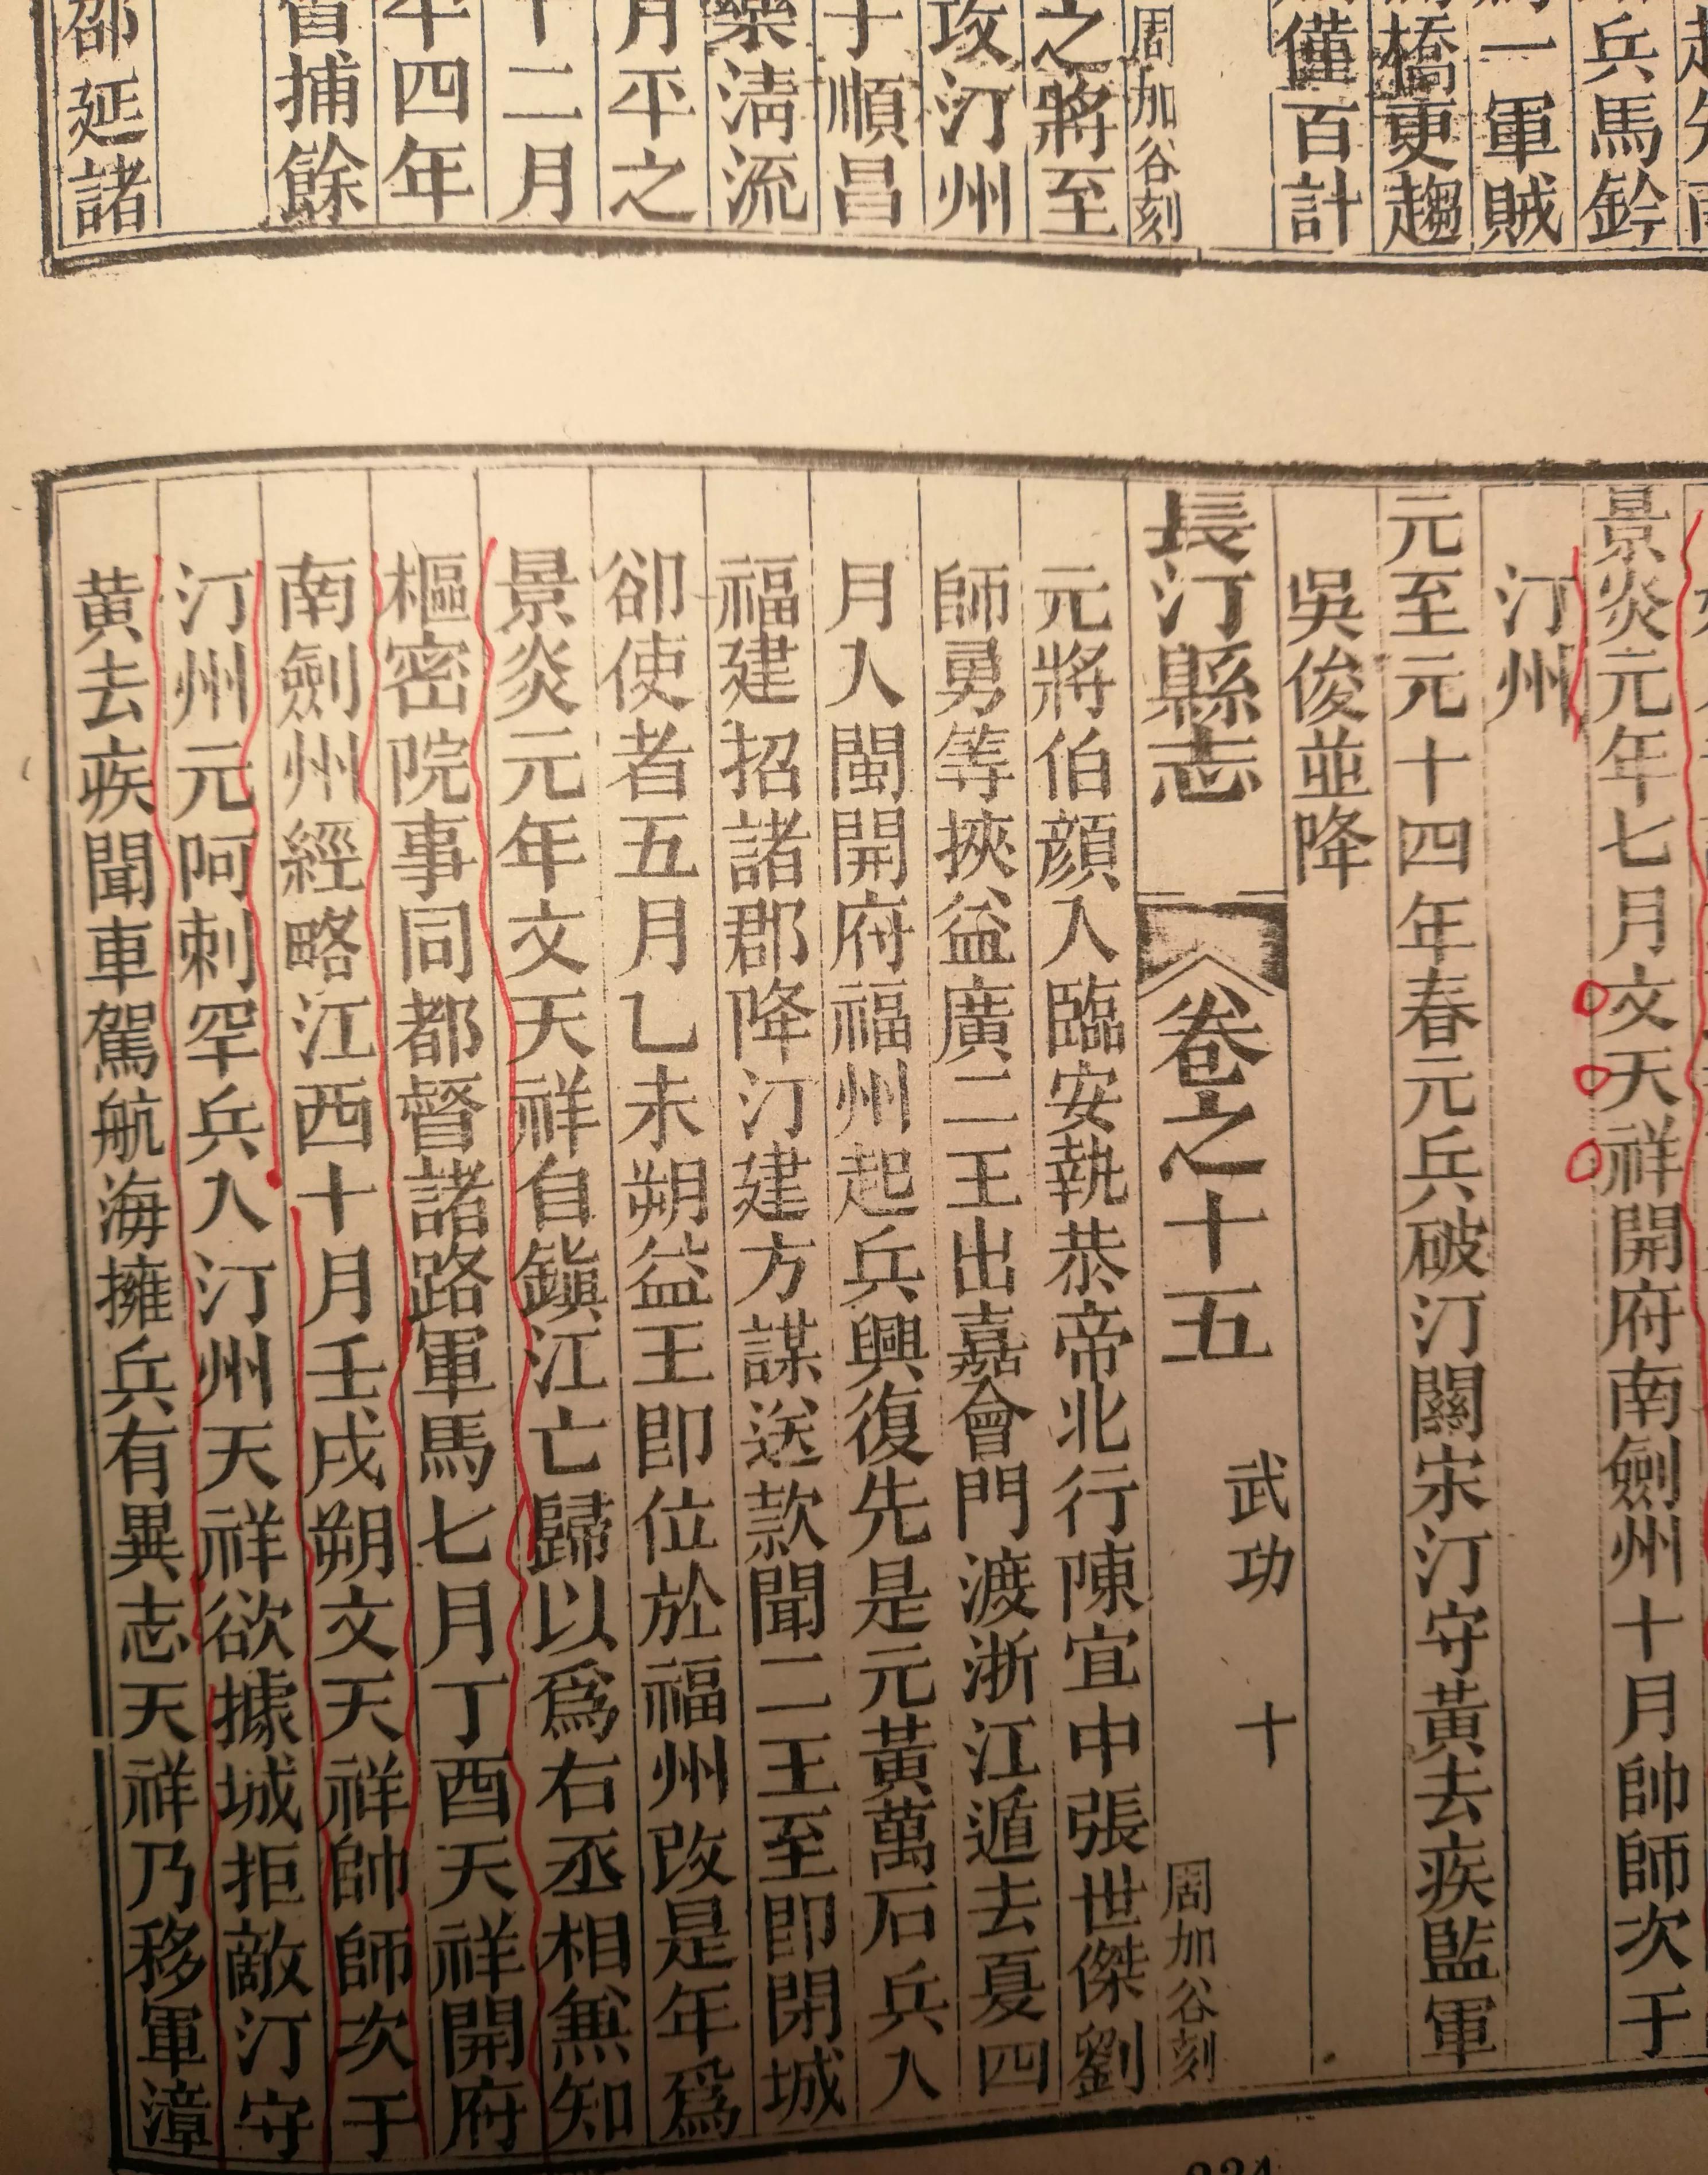 兵馬鈐
一軍賊
橋更趨
僅百計
周加谷刻
之將至
攻汀州
于順昌
欒淸流
月平之
十二月
年四年
捕餘
邵延諸
景炎元年七月文天祥開府南劍州十月帥師次于
汀州
元至元十四年春元兵破汀關宋汀守黃去疾監軍
吳俊並降
長汀縣志
卷之十五
武功
十
周加谷刻
元將伯顏入臨安執恭帝北行陳宜中張世傑劉
師勇等挾益廣二王出嘉會門渡浙江遁去夏四
月入閩開府福州起兵興復先是元黃萬石兵入
福建招諸郡降汀建方謀送款聞二王至即閉城
卻使者五月乙未朔益王即位於福州改是年爲
景炎元年文天祥自鎭江亡歸以爲右丞相無知
樞密院事同都督諸路軍馬七月丁酉天祥開府
南劍州經略江西十月壬戌朔文天祥帥師次于
汀州元阿刺罕兵入汀州天祥欲據城拒敵汀守
黃去疾聞車駕航海擁兵有異志天祥乃移軍漳